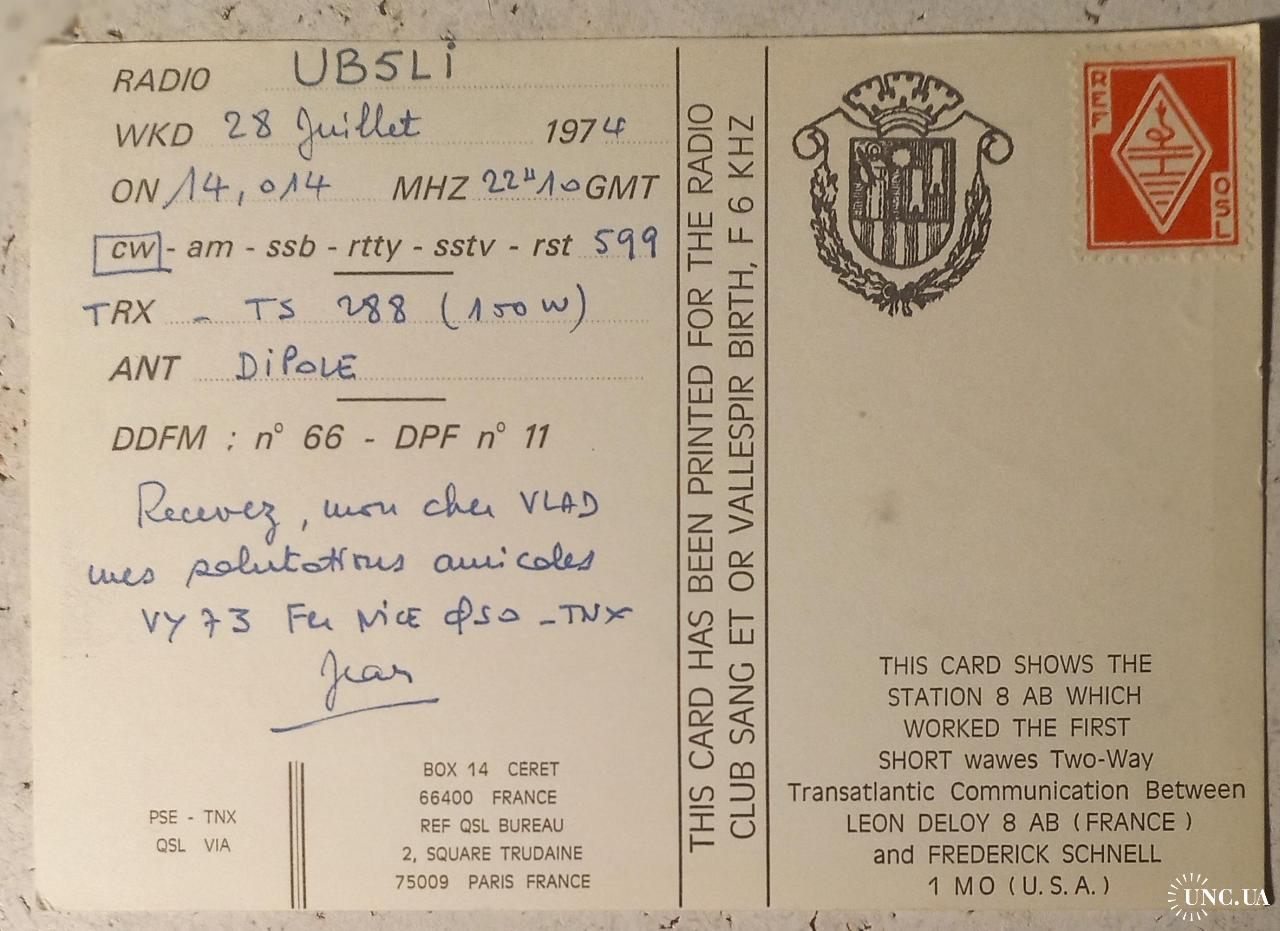 RADIO UB5Li
WKD 28 Juillet 1974
ON 14,014 MHZ 22H10 GMT
cw - am - ssb - rtty - sstv - rst 599
TRX - TS 288 (150 W)
ANT DiPOLE
DDFM : n° 66 - DPF n° 11
Recevez, mon cher VLAD
mes salutations amicales
VY 73 Fer NiCE QSO - TNX
Jean
PSE - TNX
QSL VIA
BOX 14 CERET
66400 FRANCE
REF QSL BUREAU
2, SQUARE TRUDAINE
75009 PARIS FRANCE
THIS CARD HAS BEEN PRINTED FOR THE RADIO
CLUB SANG ET OR VALLESPIR BIRTH, F 6 KHZ
REF
QSL
THIS CARD SHOWS THE
STATION 8 AB WHICH
WORKED THE FIRST
SHORT wawes Two-Way
Transatlantic Communication Between
LEON DELOY 8 AB (FRANCE)
and FREDERICK SCHNELL
1 MO (U.S.A.)
UNC.UA